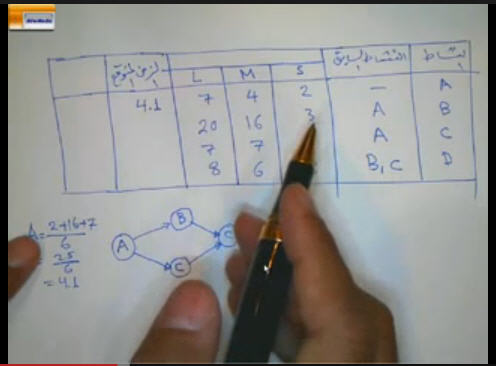 نشاط النشاط السابق S M L الزمن المتوقع
A — 2 4 7 4.1
B A 3 16 20
C A 7 7
D B, C 6 8
A = 2+16+7 / 6
= 25 / 6
= 4.1
A B C